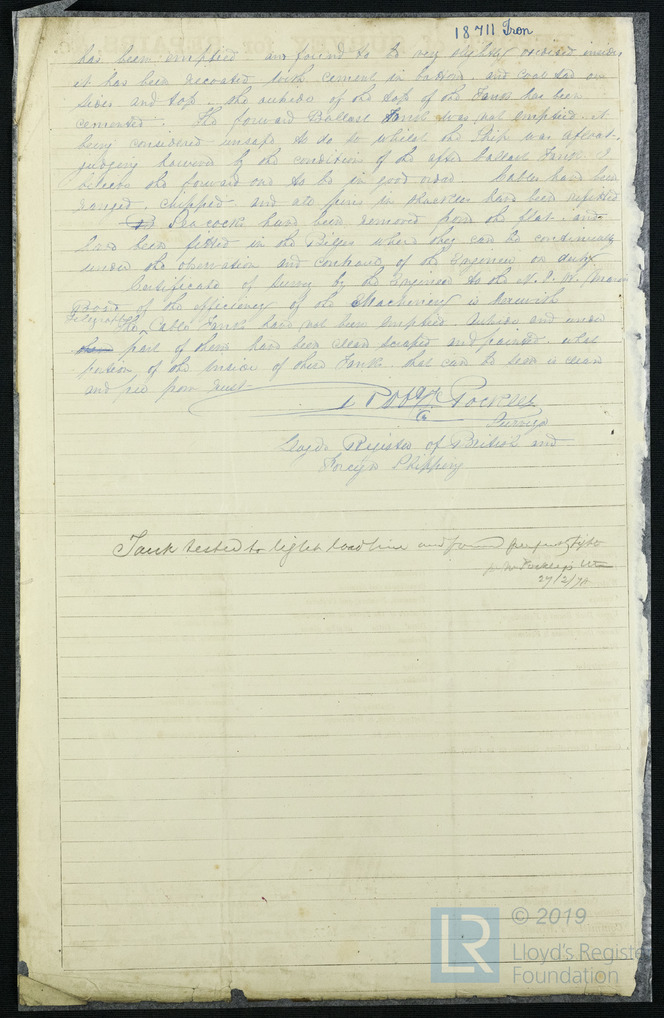 18711 Iron
has been emptied and found to be very slightly oxidised inside,
it has been recoated with cement in bottom, and coal tar on
sides and top. the outside of the top of the Tank has been
cemented. The forward Ballast Tank was not emptied, it
being considered unsafe to do so whilst the Ship was afloat.
judging however by the condition of the after ballast Tank I
believe the forward one to be in good order. Cables have been
ranged, chipped and all pins in shackles have been refitted
Sea cocks have been removed from the flat and
have been fitted in the Bilges where they can be continually
under the observation and command of the Engineer on duty
Certificate of Survey by the Engineer to the N. S. W. Marine
Board of the efficiency of the Machinery is herewith
Telegraph
The Cable Tanks have not been emptied. Outside and under
part of them have been clean scraped and painted. what
portion of the inside of these Tanks that can be seen is clean
and free from rust
Pockley
Surveyor
Lloyds Register of British and
Foreign Shipping
Tank tested to light load line and found perfectly tight
27/2/78
© 2019
LR
Lloyd's Register
Foundation